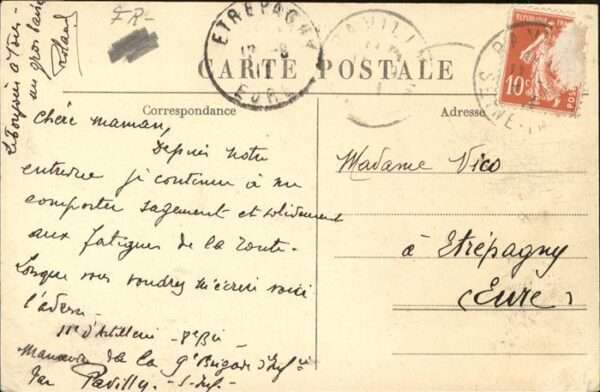 FR-
ETREPAGNY
EURE
PAVILLY
CARTE POSTALE
REPUBLIQUE
10c
POSTES
PAVILLY
SEINE-IN
Correspondance
Adresse
Chère maman,
Depuis notre
entrevue je continue à me
comporter sagement et solidement
aux fatigues de la route.
Lorsque vous voudrez m'écrire voici
l'adresse
11e d'Artillerie - 7e Bie
Manœuvre de la 9e Brigade d'Infrie
Par Pavilly - S-Infre
Madame Vico
à Etrépagny
(Eure)
à tous
un gros baiser
Roland